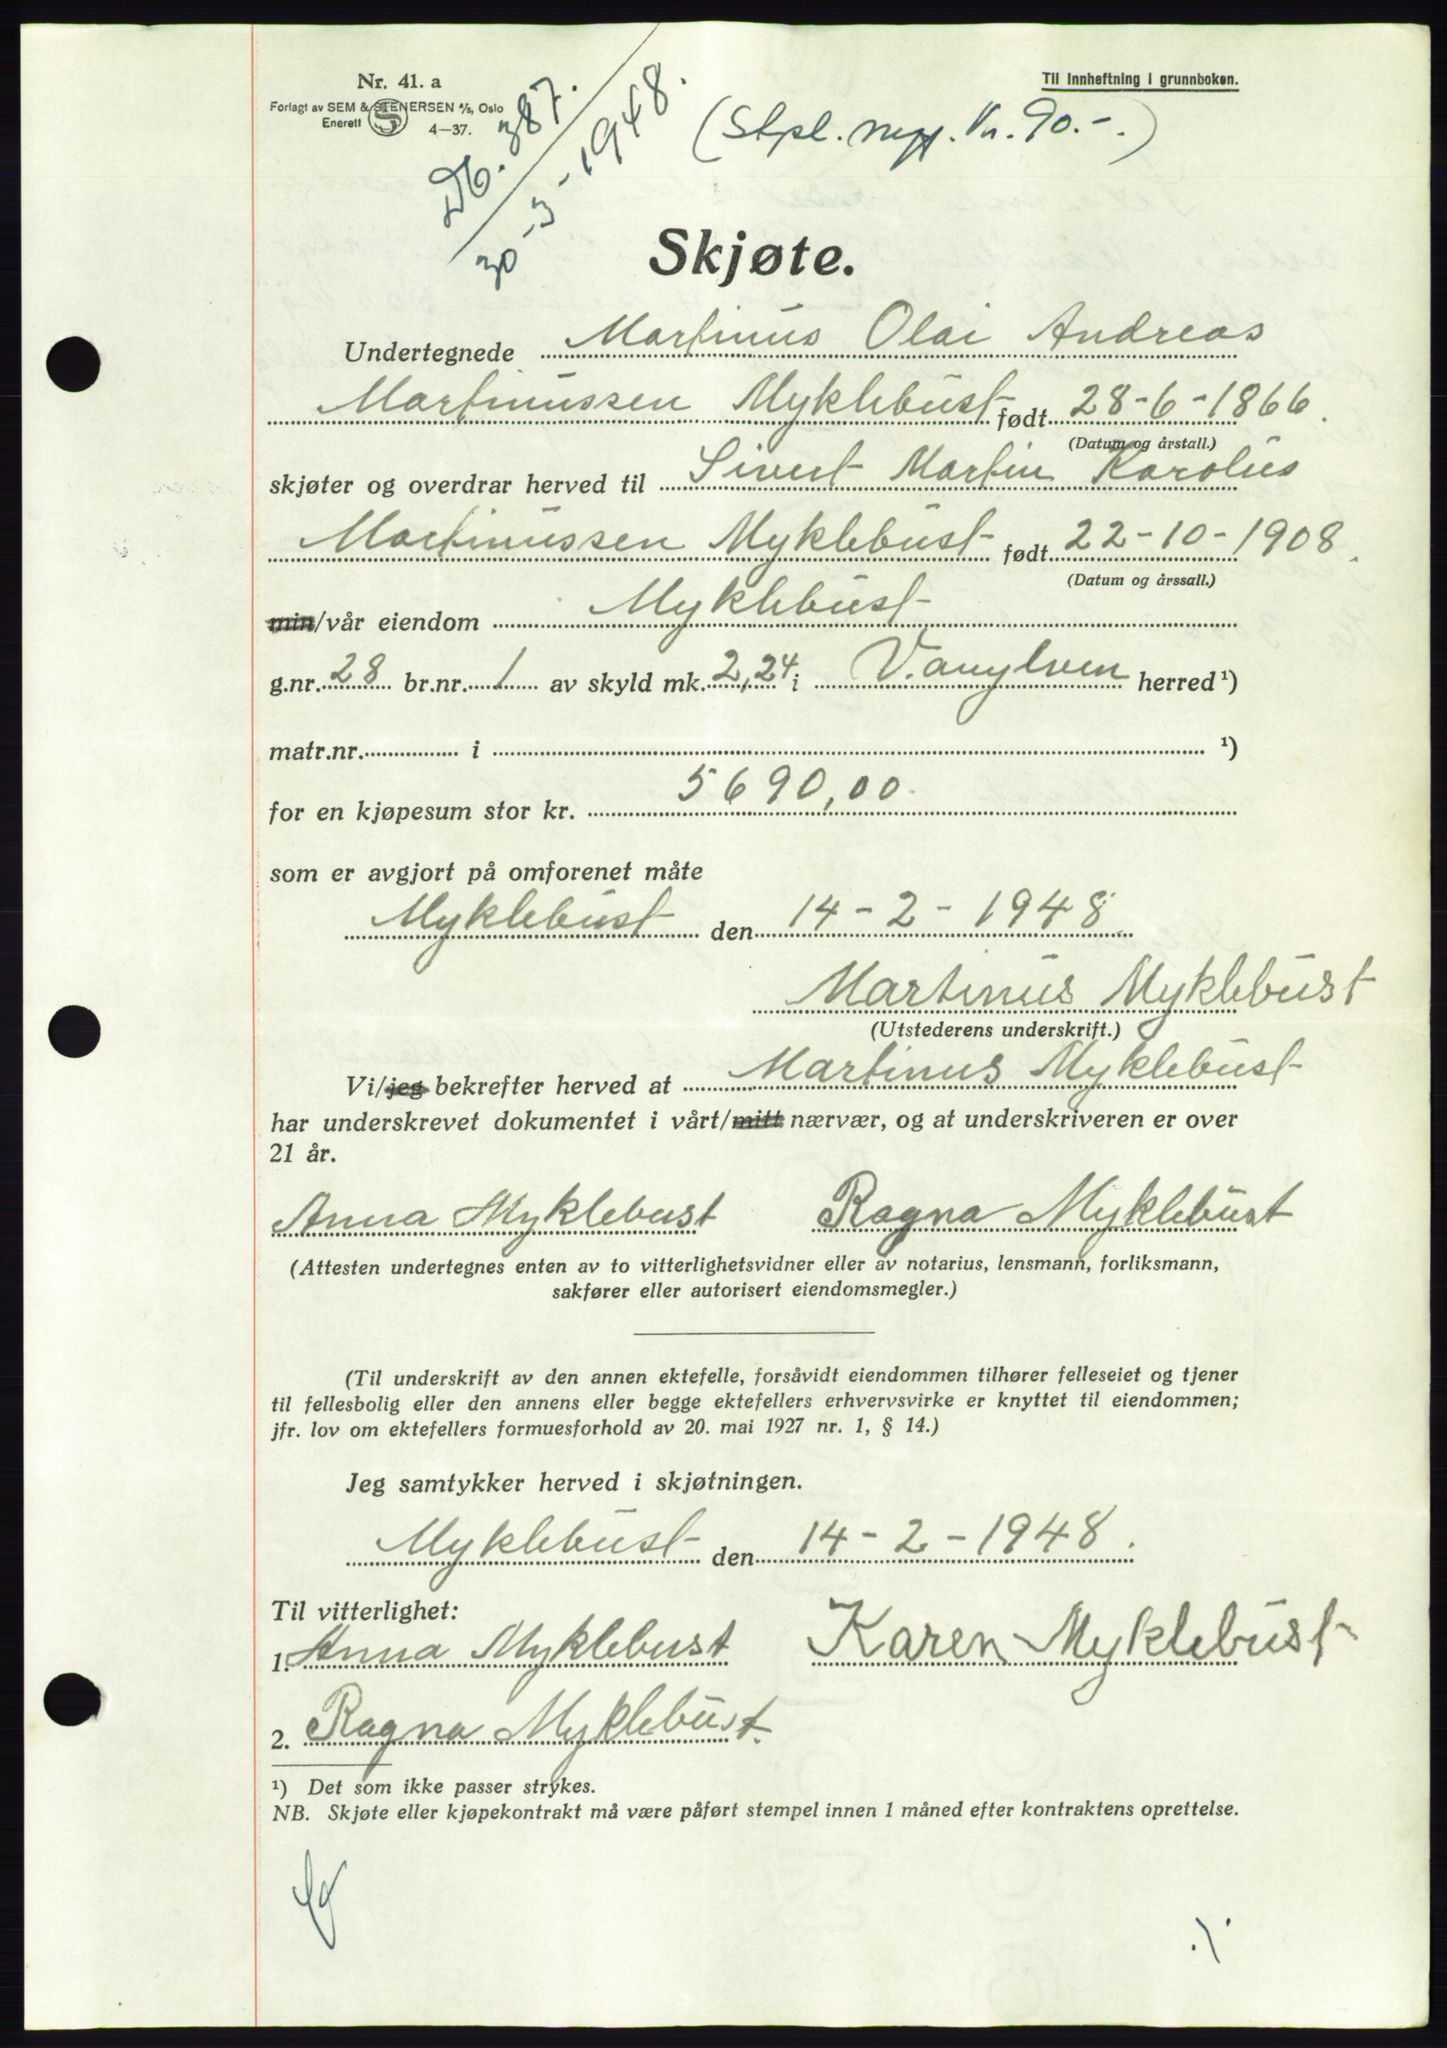 Nr. 41. a
Forlagt av SEM & STENERSEN A/S, Oslo
Enerett 4—37.
Til innheftning i grunnboken.
Db. 387.
30-3-1948.
(Stpl. Kr. 90.-.)
Skjøte.
Undertegnede Martinus Olai Andreas
Martinussen Myklebust født 28-6-1866.
(Datum og årstall.)
skjøter og overdrar herved til Sivert Martin Karolus
Martinussen Myklebust født 22-10-1908.
(Datum og årssall.)
min/vår eiendom Myklebust
g.nr. 28 br.nr. 1 av skyld mk. 2,24 i Vanylven herred ¹)
matr.nr. i ¹)
for en kjøpesum stor kr. 5690,00.
som er avgjort på omforenet måte
Myklebust den 14-2-1948.
Martinus Myklebust
(Utstederens underskrift.)
Vi/jeg bekrefter herved at Martinus Myklebust
har underskrevet dokumentet i vårt/mitt nærvær, og at underskriveren er over
21 år.
Anna Myklebust Ragna Myklebust
(Attesten undertegnes enten av to vitterlighetsvidner eller av notarius, lensmann, forliksmann,
sakfører eller autorisert eiendomsmegler.)
(Til underskrift av den annen ektefelle, forsåvidt eiendommen tilhører felleseiet og tjener
til fellesbolig eller den annens eller begge ektefellers erhvervsvirke er knyttet til eiendommen;
jfr. lov om ektefellers formuesforhold av 20. mai 1927 nr. 1, § 14.)
Jeg samtykker herved i skjøtningen.
Myklebust den 14-2-1948.
Til vitterlighet:
1. Anna Myklebust Karen Myklebust
2. Ragna Myklebust.
¹) Det som ikke passer strykes.
NB. Skjøte eller kjøpekontrakt må være påført stempel innen 1 måned efter kontraktens oprettelse.